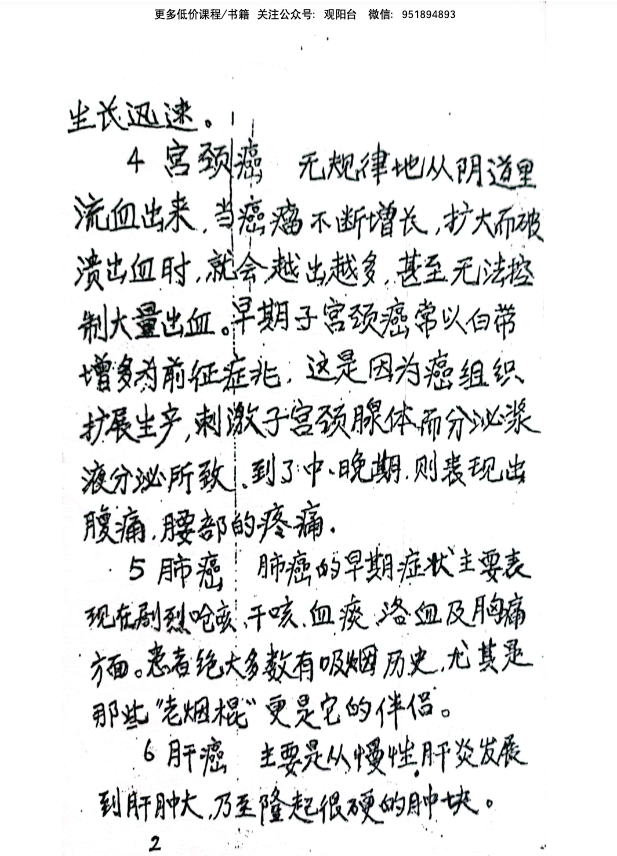 更多低价课程/书籍 关注公众号: 观阳台 微信: 951894893
生长迅速。
4 宫颈癌 无规律地从阴道里
流血出来,当癌瘤不断增长,扩大而破
溃出血时,就会越出越多,甚至无法控
制大量出血。早期子宫颈癌常以白带
增多为前征症兆,这是因为癌组织
扩展生产,刺激子宫颈腺体而分泌浆
液分泌所致、到了中、晚期,则表现出
腹痛、腰部的疼痛.
5 肺癌 肺癌的早期症状主要表
现在剧烈呛咳、干咳、血痰、洛血及胸痛
方面。患者绝大多数有吸烟历史,尤其是
那些“老烟棍”更是它的伴侣。
6 肝癌 主要是从慢性肝炎发展
到肝肿大,乃至隆起很硬的肿块。
2